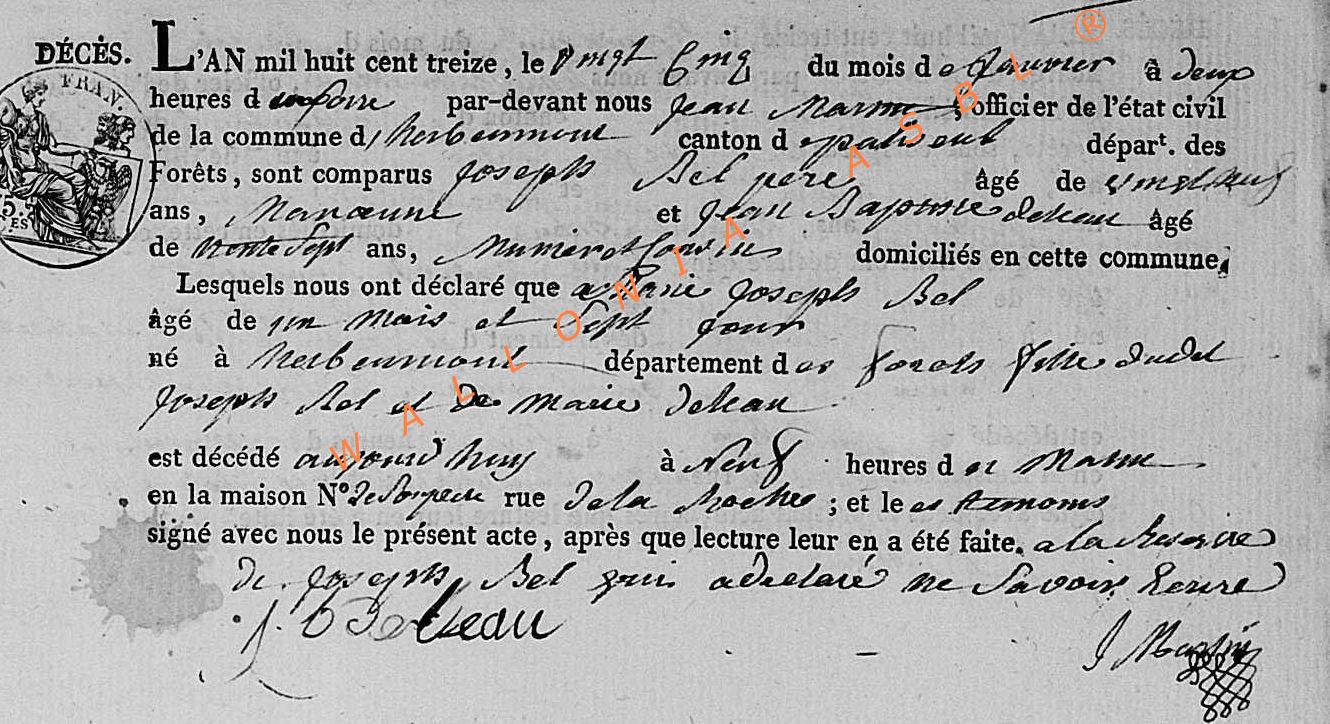 DÉCÈS. L'AN mil huit cent treize, le vingt Cinq du mois de Janvier à deux
heures du soir par-devant nous Jean Martin, officier de l'état civil
de la commune d'herbeumont canton de paliseul départ. des
Forêts, sont comparus Joseph Bel pere âgé de
ans, Manoeuvre et Jean Baptiste deleau âgé
de trente Sept ans, domiciliés en cette commune,
Lesquels nous ont déclaré que Marie Joseph Bel
âgé de un mois et Sept jour
né à herbeumont département des forets fille dudit
Joseph Bel et De Marie deleau
est décédé aujourd'huy à Neuf heures de Matin
en la maison N° rue de la Roche ; et les temoins
signé avec nous le présent acte, après que lecture leur en a été faite. a la Reserve
de Joseph Bel qui a declaré ne Savoir Ecrire
J B Deleau
J Martin
FRAN.
75.
ES
WALLONIA ASBL ®